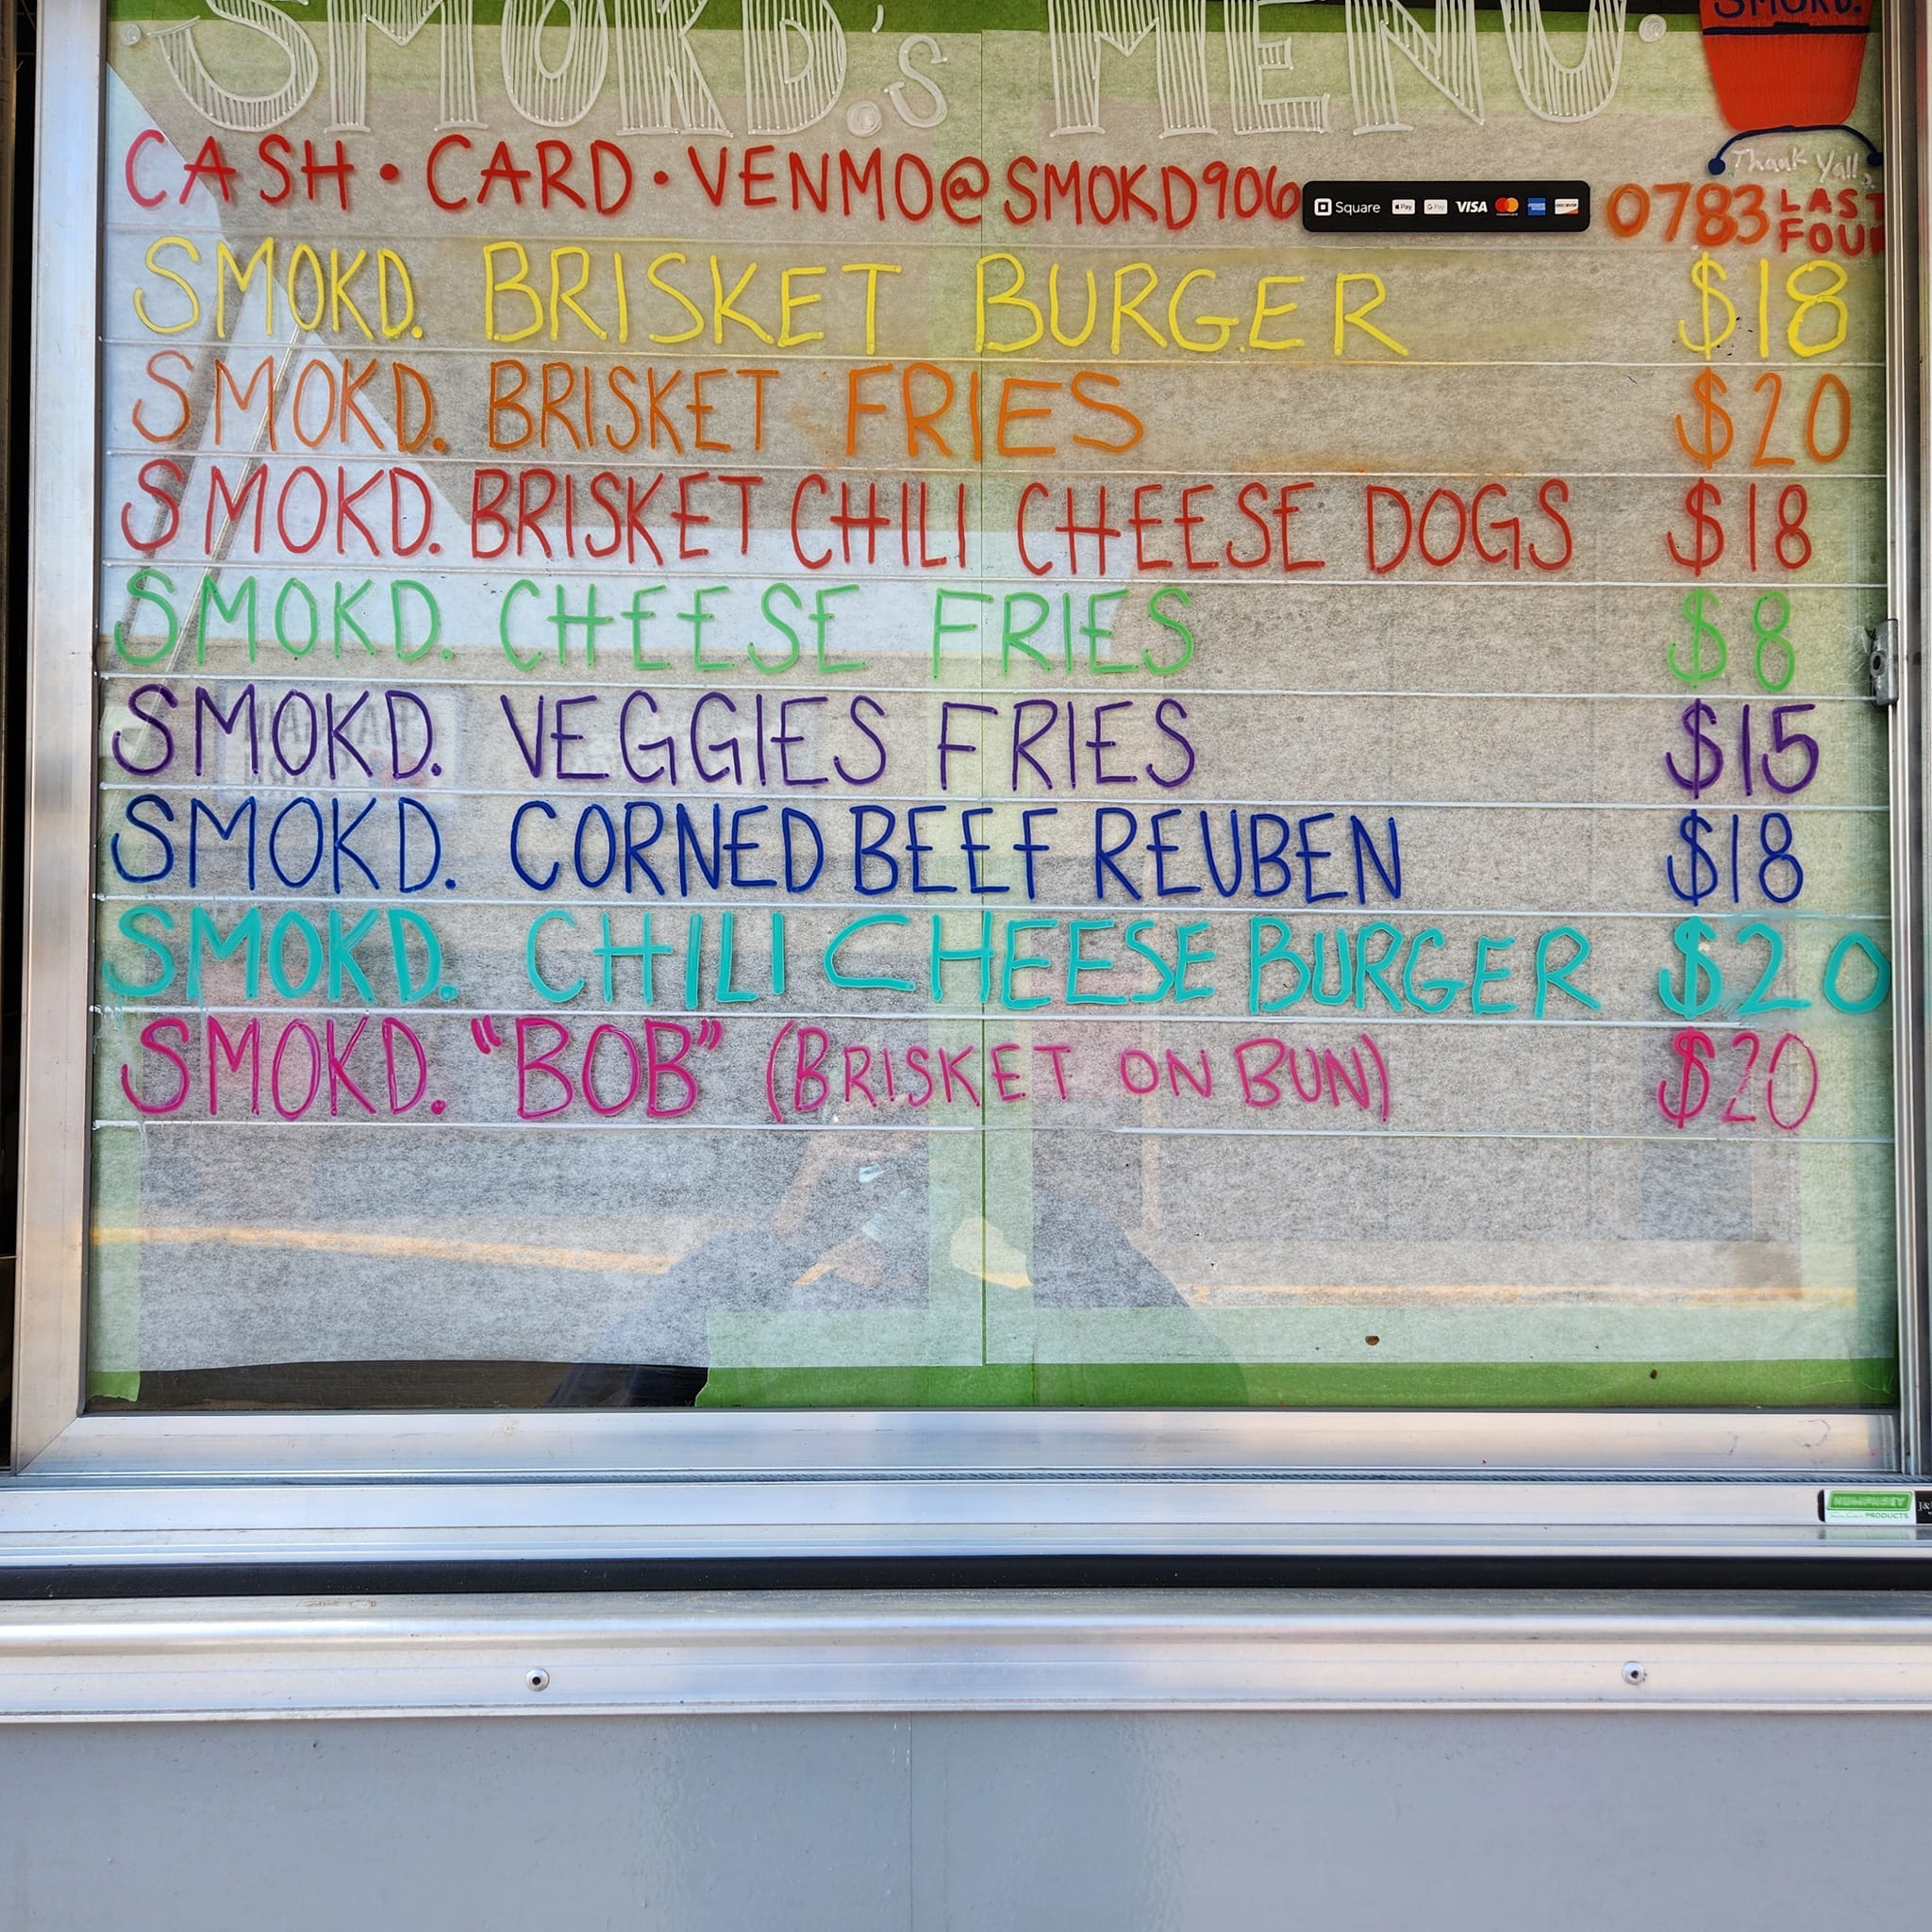 SMOKD.'s MENU.
SMOKD.
Thank Yall,
CASH • CARD • VENMO@SMOKD906 Square Pay G Pay VISA 0783 LAST FOUR
SMOKD. BRISKET BURGER $18
SMOKD. BRISKET FRIES $20
SMOKD. BRISKET CHILI CHEESE DOGS $18
SMOKD. CHEESE FRIES $8
SMOKD. VEGGIES FRIES $15
SMOKD. CORNED BEEF REUBEN $18
SMOKD. CHILI CHEESE BURGER $20
SMOKD. "BOB" (BRISKET ON BUN) $20
PRODUCTS